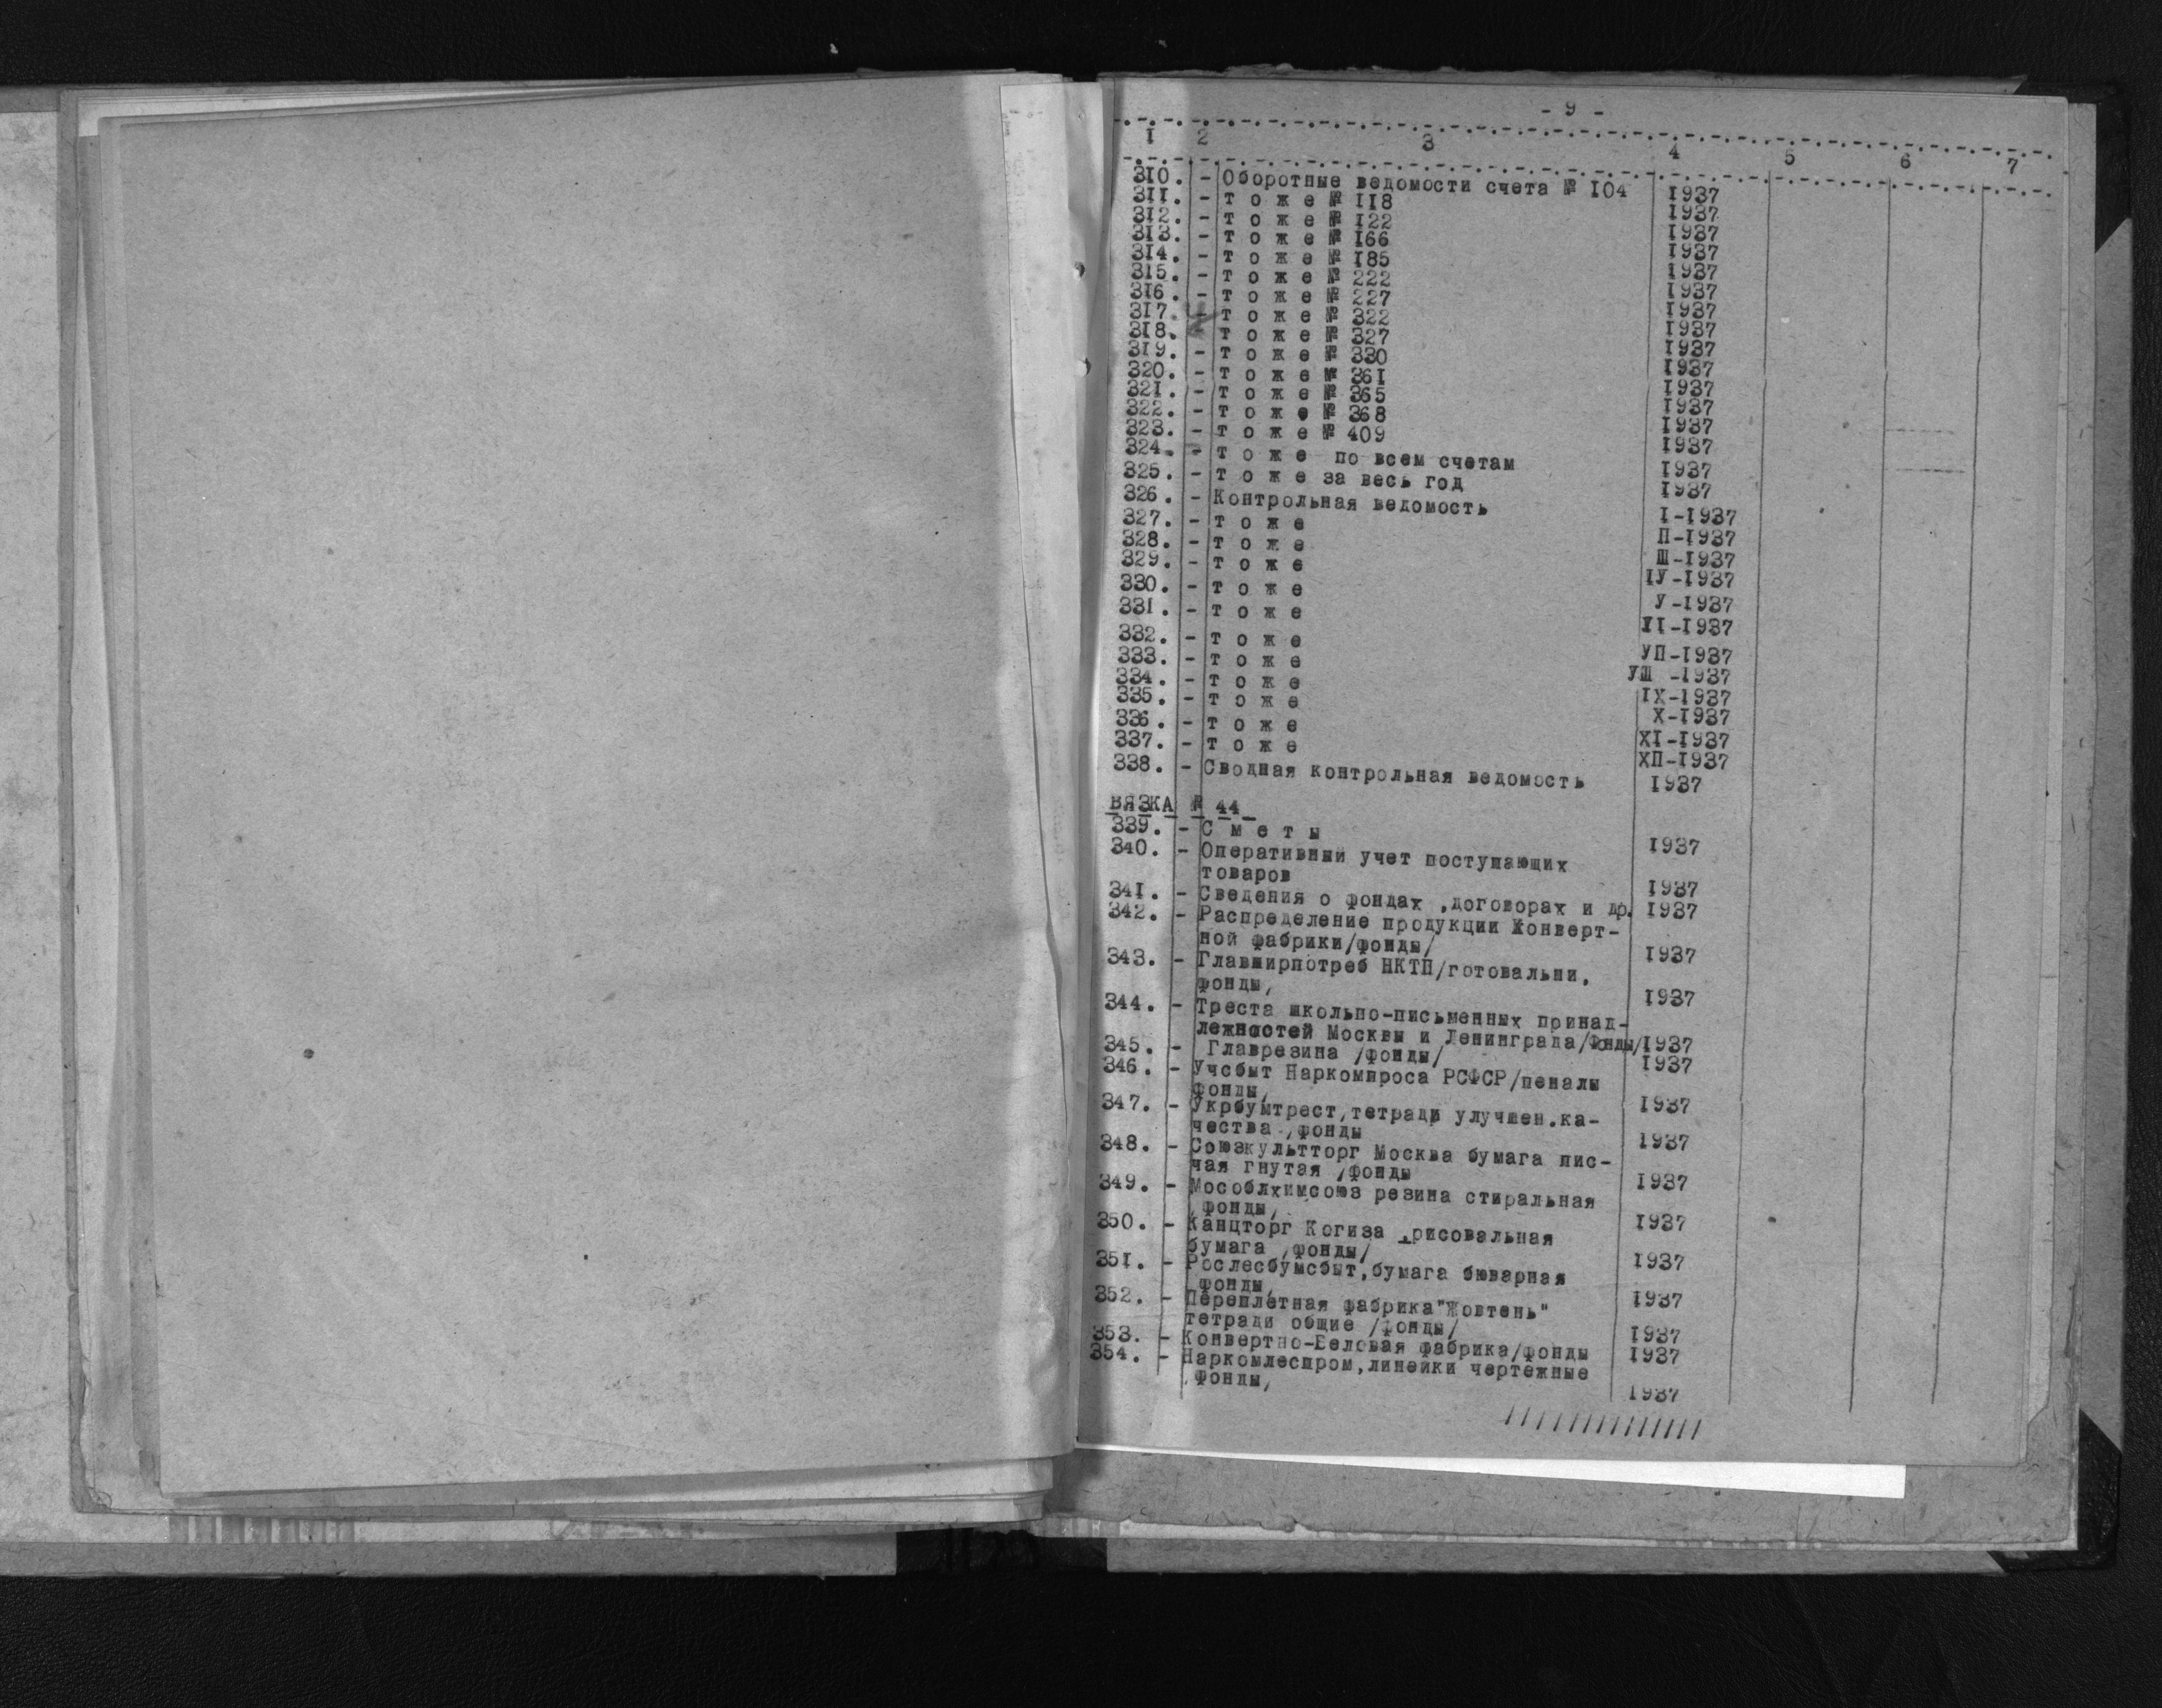 - 9 -
I 2 3 4 5 6 7
3I0. - Оборотные ведомости счета № I04 I937
3II. - т о ж е № II8 I937
3I2. - т о ж е № I22 I937
3I3. - т о ж е № I66 I937
3I4. - т о ж е № I85 I937
3I5. - т о ж е № 222 I937
3I6. - т о ж е № 227 I937
3I7. - т о ж е № 322 I937
3I8. - т о ж е № 327 I937
3I9. - т о ж е № 330 I937
320. - т о ж е № 36I I937
32I. - т о ж е № 365 I937
322. - т о ж е № 368 I937
323. - т о ж е № 409 I937
324. - т о ж е по всем счетам I937
325. - т о ж е за весь год I937
326. - Контрольная ведомость I-I937
327. - т о ж е П-I937
328. - т о ж е Ш-I937
329. - т о ж е IУ-I937
330. - т о ж е У-I937
33I. - т о ж е УI-I937
332. - т о ж е УП-I937
333. - т о ж е УШ -I937
334. - т о ж е IX-I937
335. - т о ж е X-I937
336. - т о ж е XI-I937
337. - т о ж е XП-I937
338. - Сводная контрольная ведомость I937
ВЯЗКА № 44
339. - С м е т ы I937
340. - Оперативный учет поступающих
товаров I937
34I. - Сведения о фондах ,договорах и др. I937
342. - Распределение продукции Конверт-
ной фабрики/фонды/ I937
343. - Главширпотреб НКТП/готовальни.
фонды/ I937
344. - Треста школьно-письменных принад-
лежностей Москвы и Ленинграда/фонды/ I937
345. - Главрезина /фонды/ I937
346. - Учсбыт Наркомпроса РСФСР/пеналы
фонды/ I937
347. - Укрбумтрест,тетради улучшен.ка-
чества /фонды I937
348. - Союзкультторг Москва бумага пис-
чая гнутая /фонды I937
349. - Мособлхимсоюз резина стиральная
/фонды/ I937
350. - Канцторг Когиза ,рисовальная
бумага /фонды/ I937
35I. - Рослесбумсбыт,бумага бюварная
/фонды/ I937
352. - Переплетная фабрика"Жовтень"
тетради общие /фонды/ I937
353. - Конвертно-Беловая фабрика/фонды I937
354. - Наркомлеспром,линейки чертежные
/фонды/ I937
///////////////